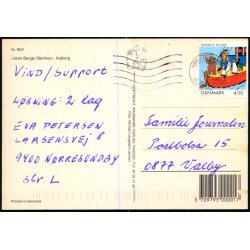 Nr. 9607
»Jens Bangs Stenhus«, Aalborg
RASMUS KLUMP
DANMARK 4.00
VIND/SUPPORT
LØSNING: 2 lag
EVA PETERSEN
LARSENSVEJ 8
9400 NØRRESUNDBY
STR. L
Familie Journalen
Postboks 15
0877 Valby
5 709793 000011
Printed in Denmark